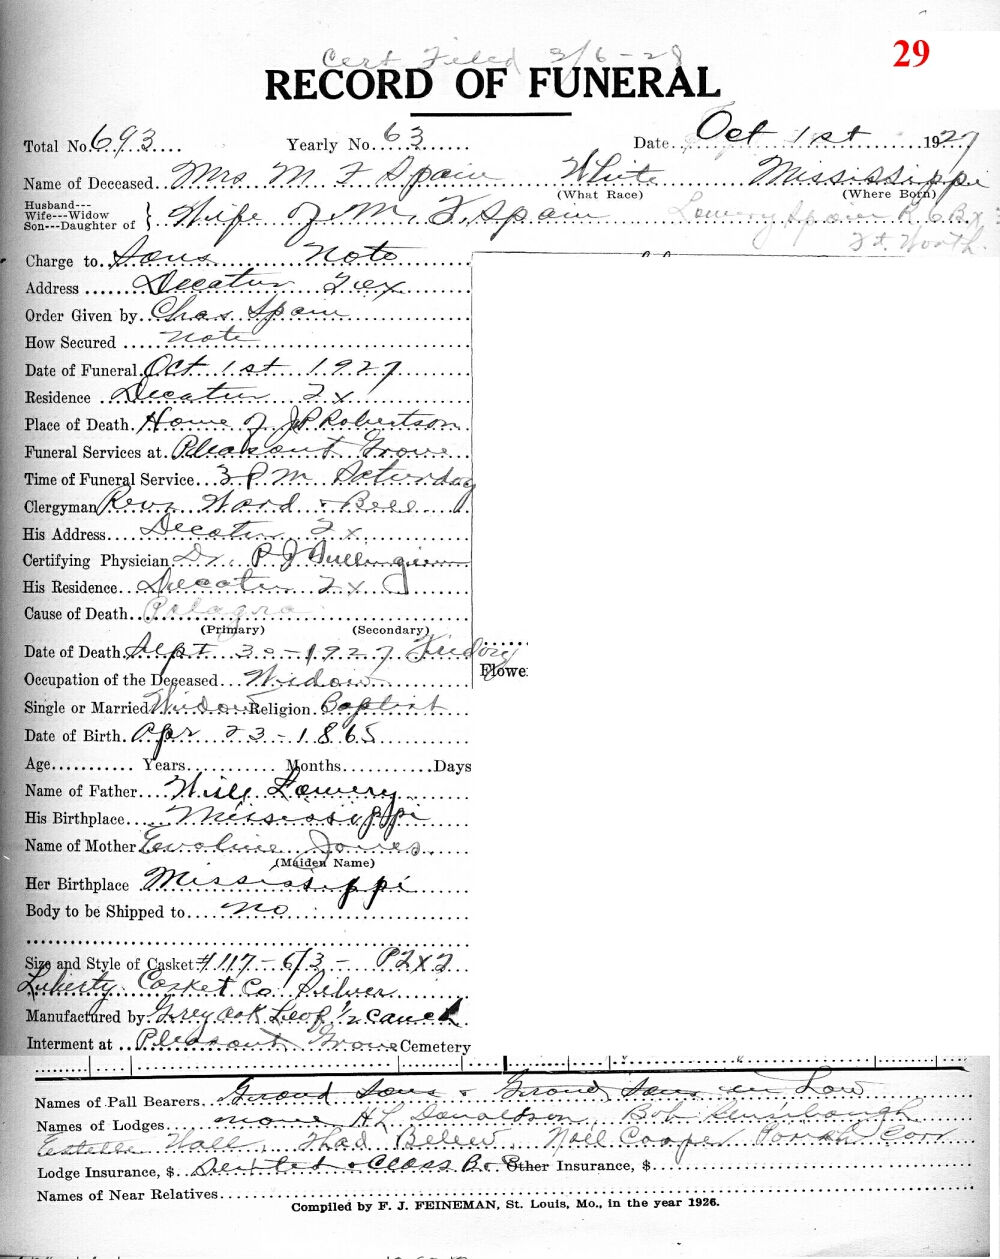 Cert Filed 3/6-28
29
RECORD OF FUNERAL
Total No. 693 Yearly No. 63 Date Oct 1st 1927
Name of Deceased Mrs M F Spain White Mississippi
(What Race) (Where Born)
Husband---
Wife---Widow
Son---Daughter of } Wife of M. F. Spain Lowery Spain R 6 Bx
Ft. Worth
Charge to Sons Note
Address Decatur Tex
Order Given by Chas Spain
How Secured note
Date of Funeral Oct 1st 1927
Residence Decatur Tx
Place of Death Home of J P Robertson
Funeral Services at Pleasant Grove
Time of Funeral Service 3 P M Saturday
Clergyman Revs Ward & Bell
His Address Decatur Tx
Certifying Physician Dr. P J Fullingim
His Residence Decatur Tx
Cause of Death Pelagra
(Primary) (Secondary)
Date of Death Sept 30-1927 Friday
Flowe
Occupation of the Deceased Widow
Single or Married Widow Religion Baptist
Date of Birth Apr 23-1865
Age Years Months Days
Name of Father Will Lowery
His Birthplace Mississippi
Name of Mother Evoline Jones
(Maiden Name)
Her Birthplace Mississippi
Body to be Shipped to no
Size and Style of Casket # 117-6/3- P2x2
Liberty Casket Co Silver
Manufactured by Grey oak Leaf
Interment at Pleasant Grove Cemetery
Names of Pall Bearers Grand Sons & Grand Sons in Law
Names of Lodges none H L Donaldson, Bob
Estelle Hall, Thad Belew Noll Cooper Carr
Lodge Insurance, $ & Class Other Insurance, $
Names of Near Relatives
Compiled by F. J. FEINEMAN, St. Louis, Mo., in the year 1926.